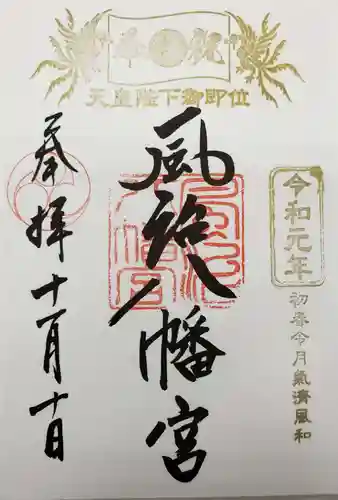 奉祝
天皇陛下御即位
令和元年
初春令月氣清風和
風治八幡宮
奉拝 十一月十日